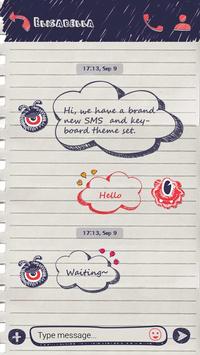 Elisabella
17:13, Sep 9
Hi, we have a brand
new SMS and key-
board theme set.
Hello
17:13, Sep 9
Waiting~
Type message...